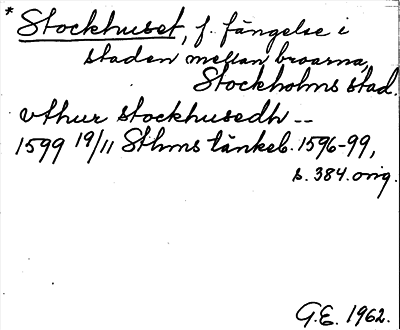 * Stockhuset, f. fängelse i
staden mellan broarna,
Stockholms stad.
vthur stockhusedh --
1599 19/11 Sthms tänkeb. 1596-99,
s. 384. orig.
G.E. 1962.